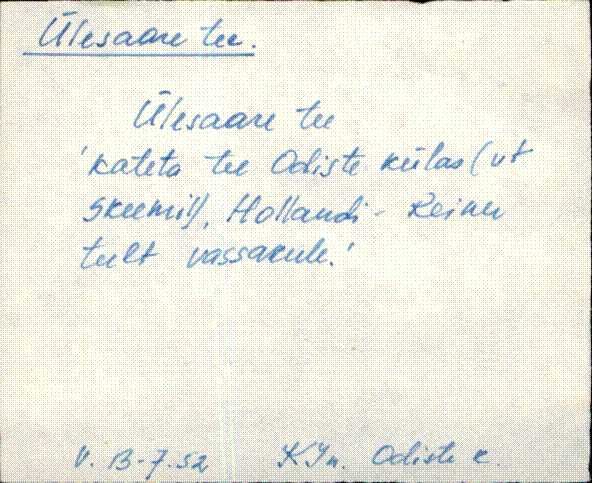 Ülesaare tee.
Ülesaare tee
'kateta tee Odiste külas (vt
skeemil), Hollandi-Reinu
teelt vassakule.'
V. 13-7.52 KJn. Odiste k.